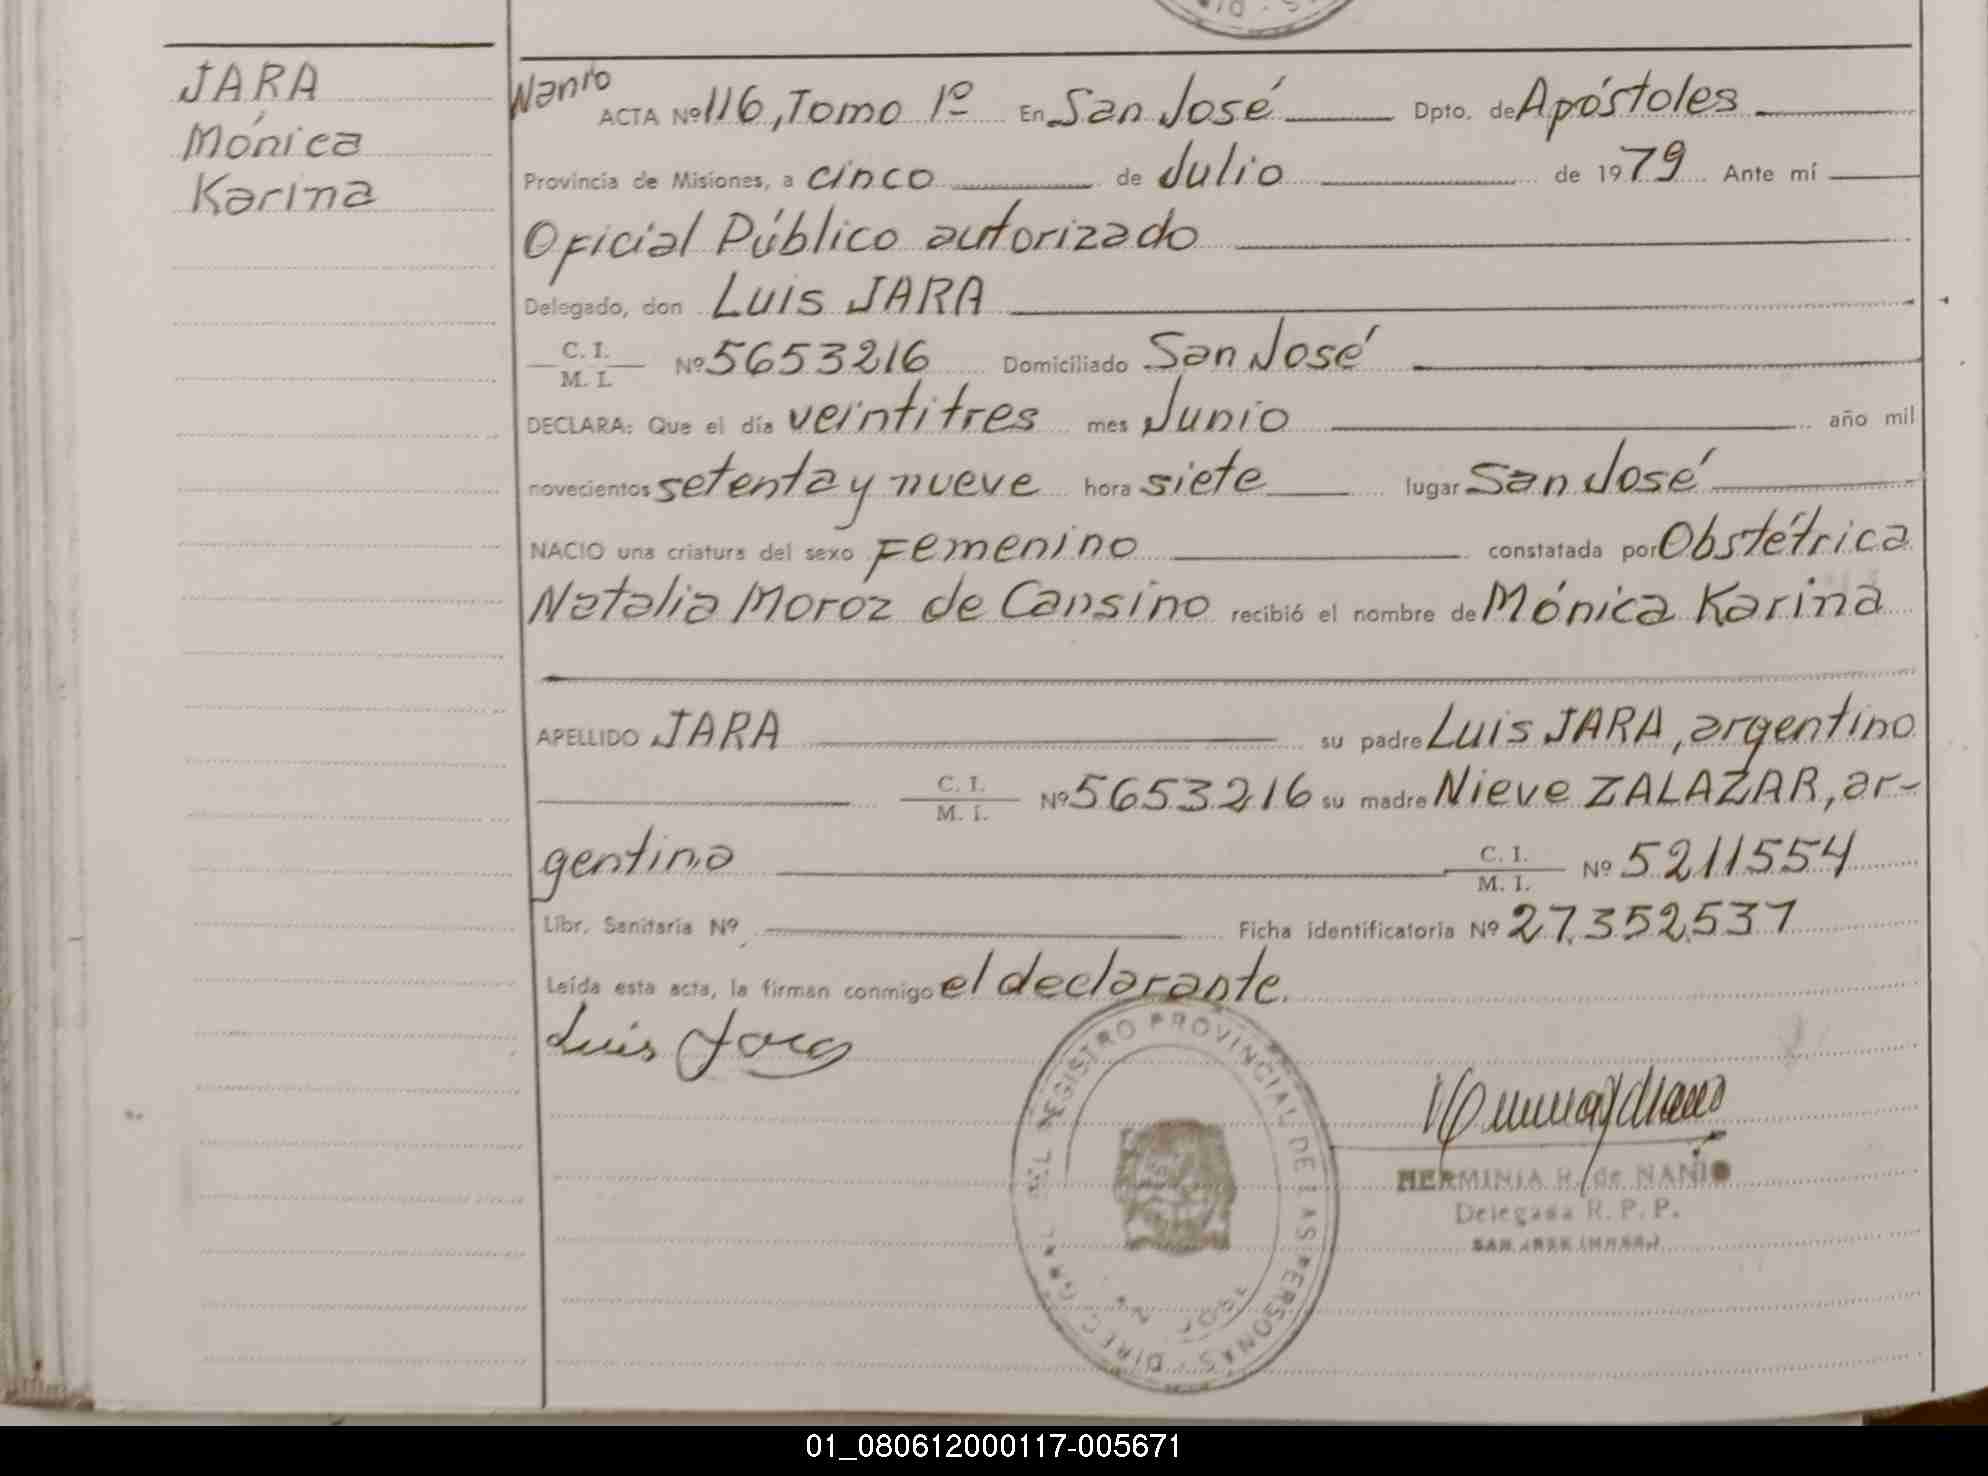 JARA
Mónica
Karina
Nanio
ACTA Nº 116, Tomo 1º En San José Dpto. de Apóstoles
Provincia de Misiones, a cinco de Julio de 1979 Ante mí
Oficial Público autorizado
Delegado, don Luis JARA
C. I.
M. I. Nº 5653216 Domiciliado San José
DECLARA: Que el día veintitres mes Junio año mil
novecientos setenta y nueve hora siete lugar San José
NACIO una criatura del sexo Femenino constatada por Obstétrica
Natalia Moroz de Cansino recibió el nombre de Mónica Karina
APELLIDO JARA su padre Luis JARA, argentino
C. I.
M. I. Nº 5653216 su madre Nieve ZALAZAR, ar-
gentina C. I.
M. I. Nº 5211554
Libr. Sanitaria Nº Ficha identificatoria Nº 27.352.537
Leída esta acta, la firman conmigo el declarante.
Luis Jara
DIREC. GRAL. DEL REGISTRO PROVINCIAL DE LAS PERSONAS
HERMINIA H. de NANIO
Delegada R. P. P.
01_080612000117-005671